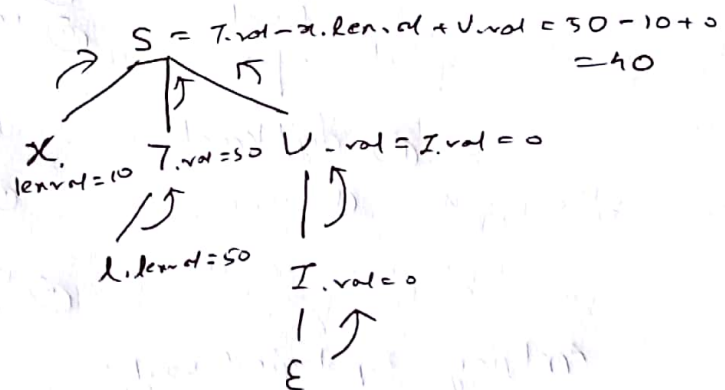 S = T.val - x.lenval + U.val = 50 - 10 + 0
= 40
X.
lenval = 10
T.val = 50
U.val = I.val = 0
l.lexval = 50
I.val = 0
ε